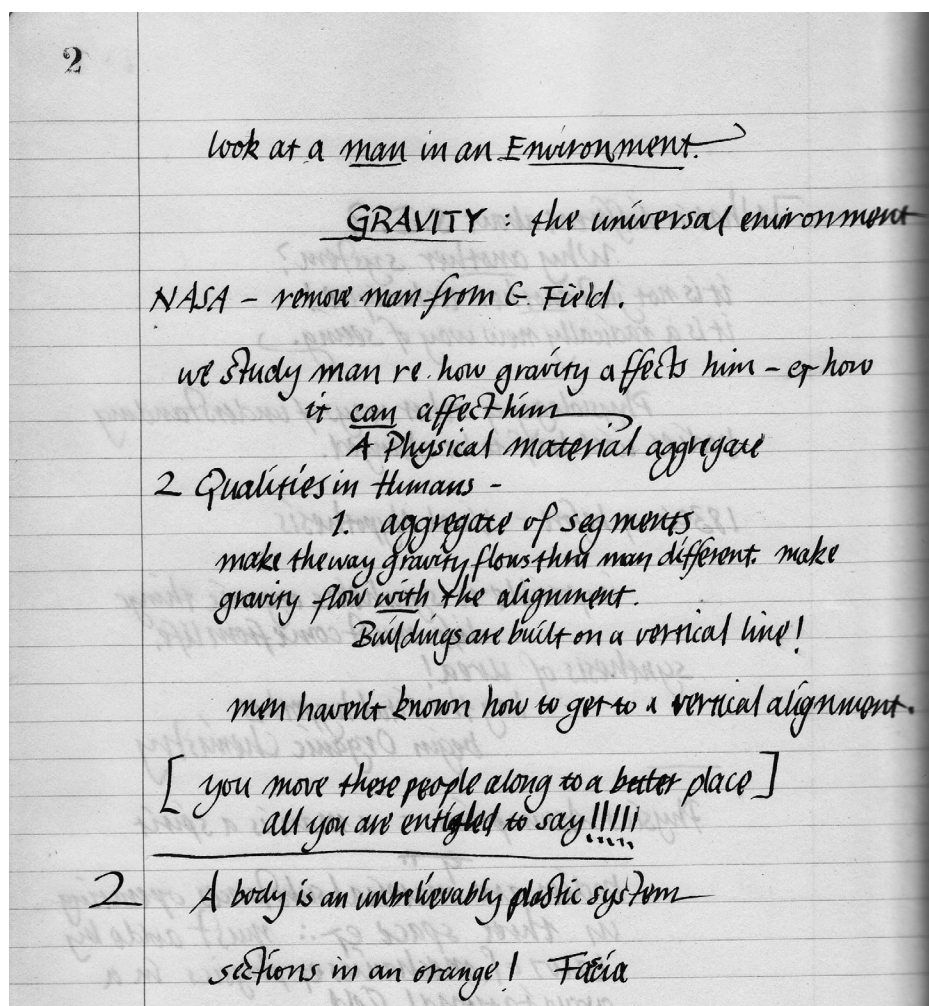 2
look at a man in an Environment.
GRAVITY : the universal environment
NASA - remove man from G. Field.
we study man re. how gravity affects him - & how
it can affect him
A Physical material aggregate
2 Qualities in Humans -
1. aggregate of segments
make the way gravity flows thru man different. make
gravity flow with the alignment.
Buildings are built on a vertical line!
men haven't known how to get to a vertical alignment.
[ you move these people along to a better place ]
all you are entitled to say !!!!!
2 A body is an unbelievably plastic system
sections in an orange! Facia